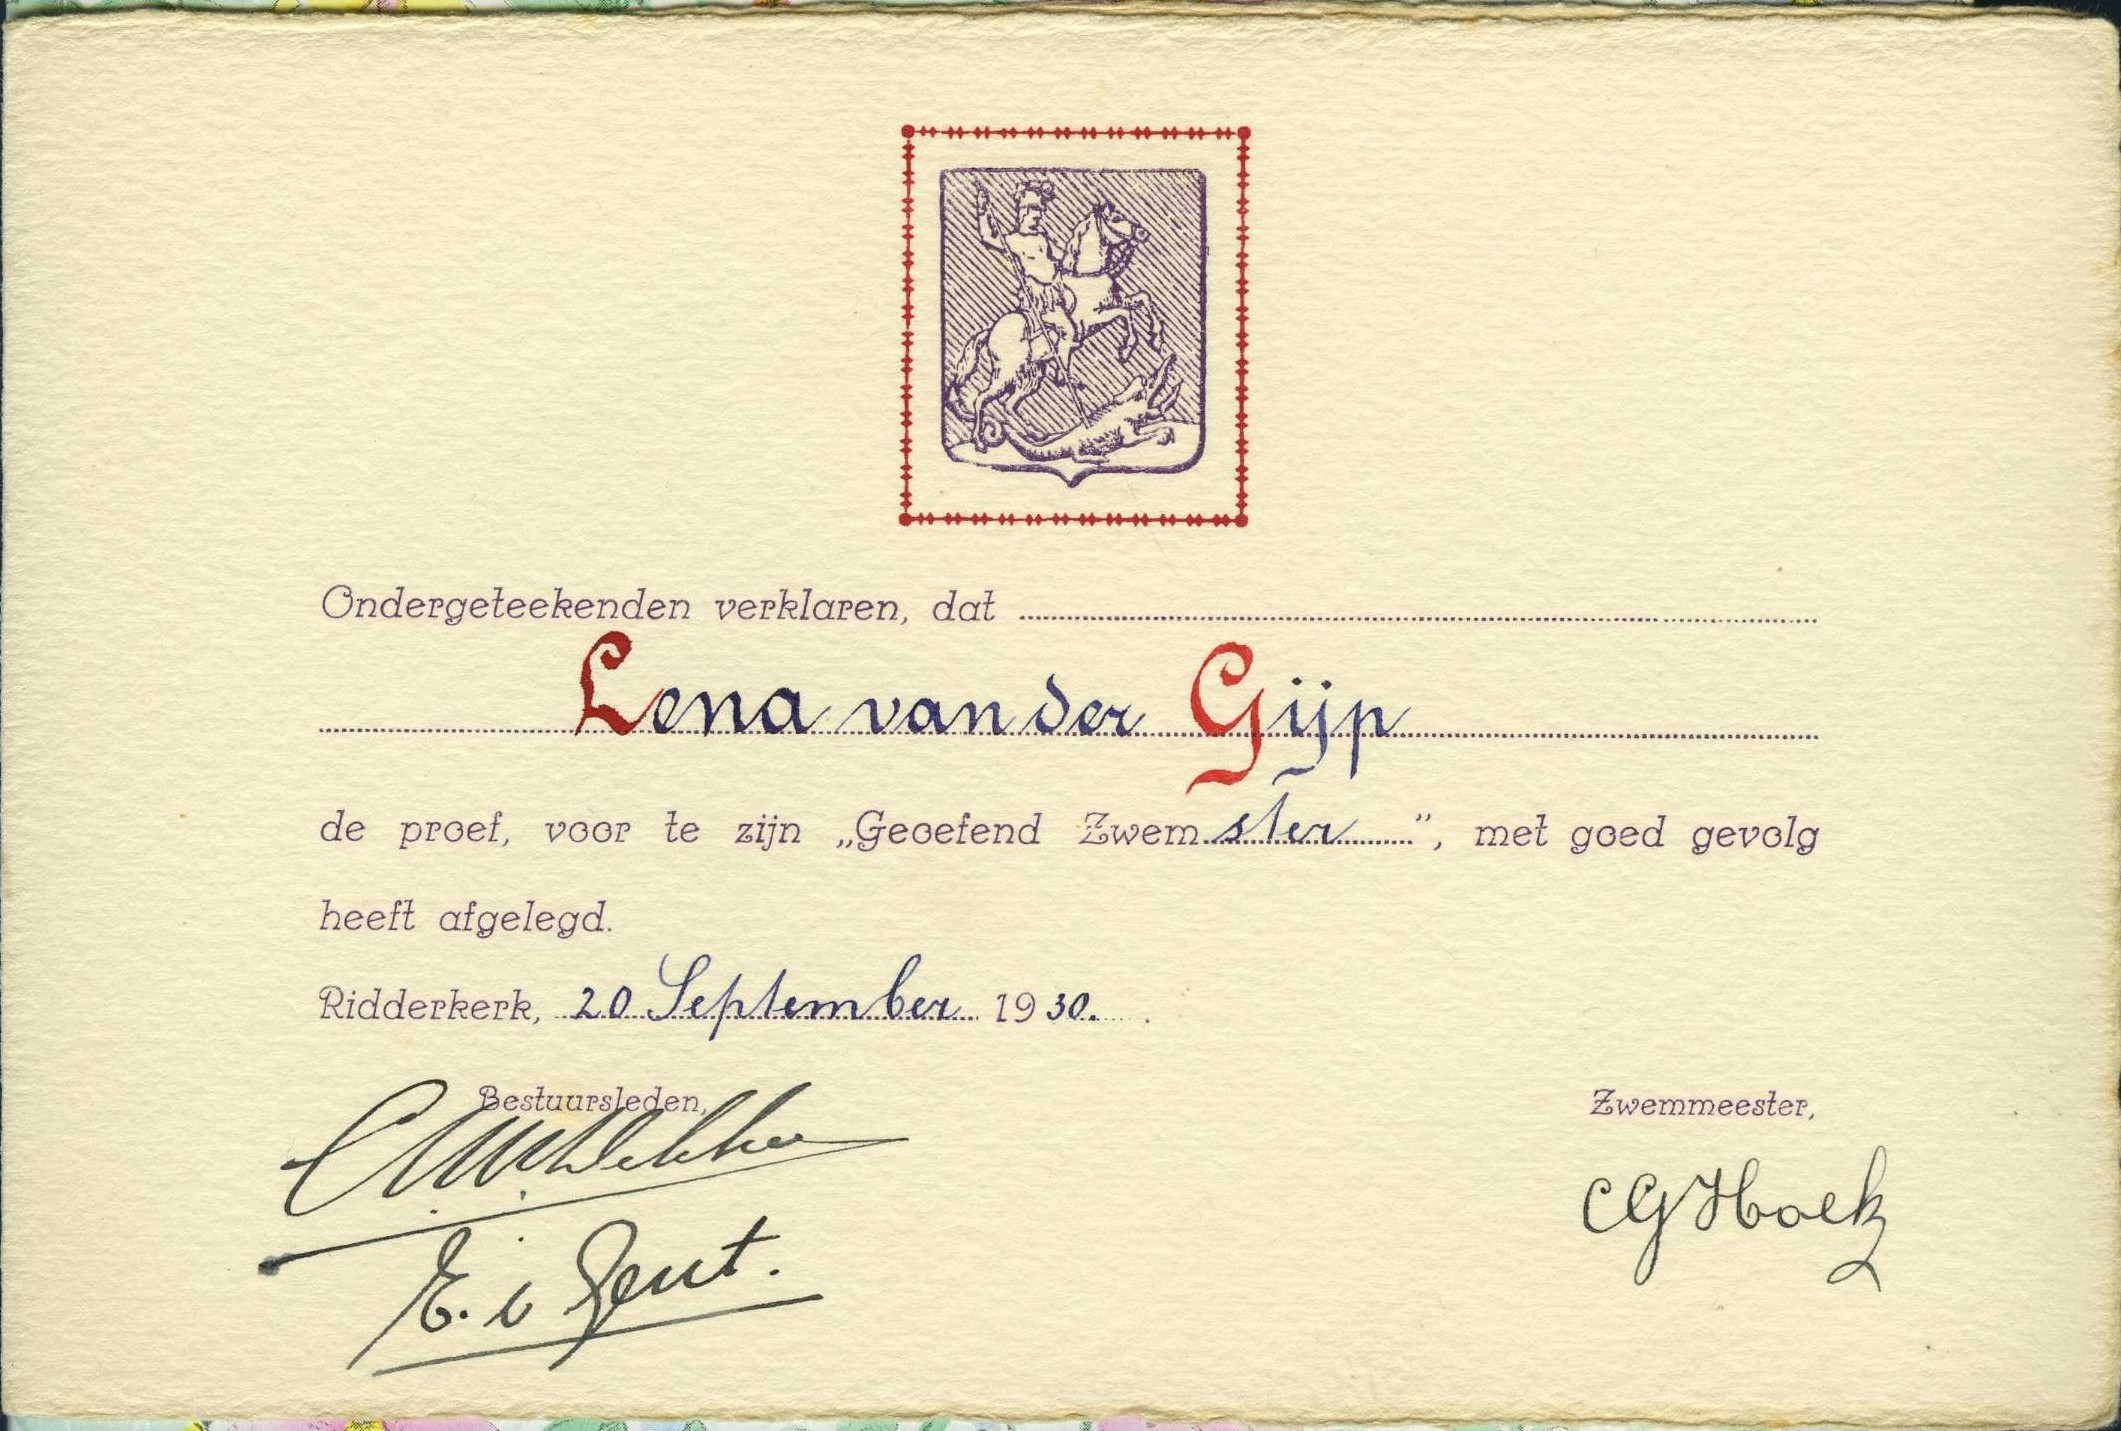 Ondergeteekenden verklaren, dat
Lena van der Gijp
de proef, voor te zijn „Geoefend Zwemster”, met goed gevolg
heeft afgelegd.
Ridderkerk, 20 September 1930.
Bestuursleden,
Zwemmeester,
E. v Gent.
CG Hoek